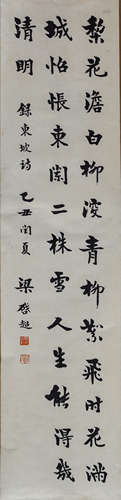 梨花澹白柳深青柳絮飛时花滿
城怊悵東闌二株雪人生能得幾
清明 錄東坡詩 乙丑閏夏 梁啓超